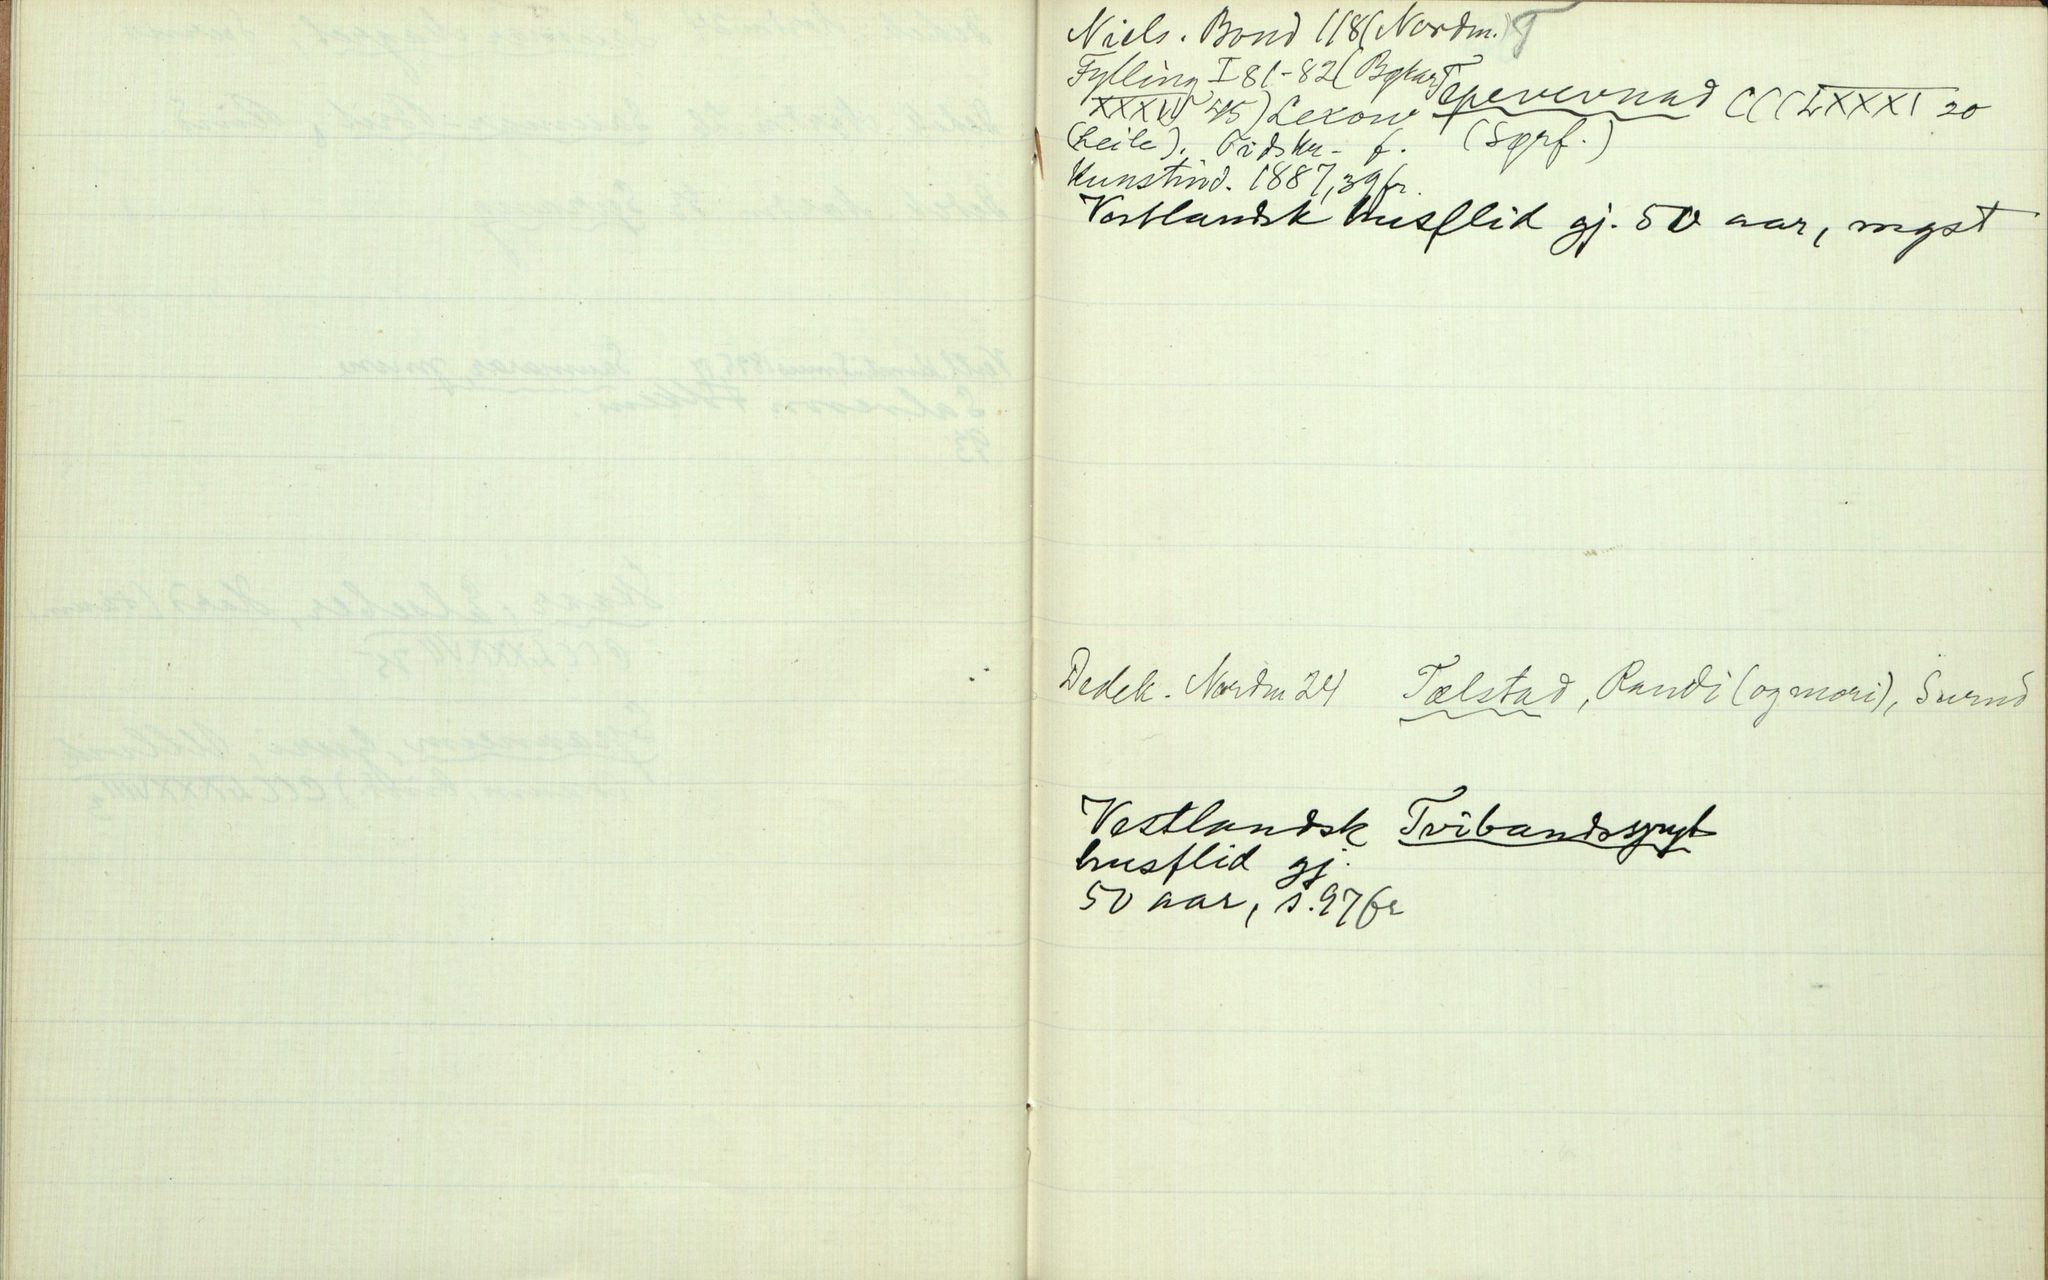 Niels. Bond 118 (Nordm.) T
Fylling I 81-82 (Bgkar
XXXIV 45) Lexow Tepevevnad CCCLXXXI 20
(Leile). Tidskr. f. (Sgrf.)
Kunstind. 1887, 39 fr.
Vestlandsk husflid gj. 50 aar, mgst
Dedek. Nordm 24 Tælstad, Randi (og mori), Surnd
Vestlandsk Tvibandssyngt
husflid gj.
50 aar, s. 97 fr